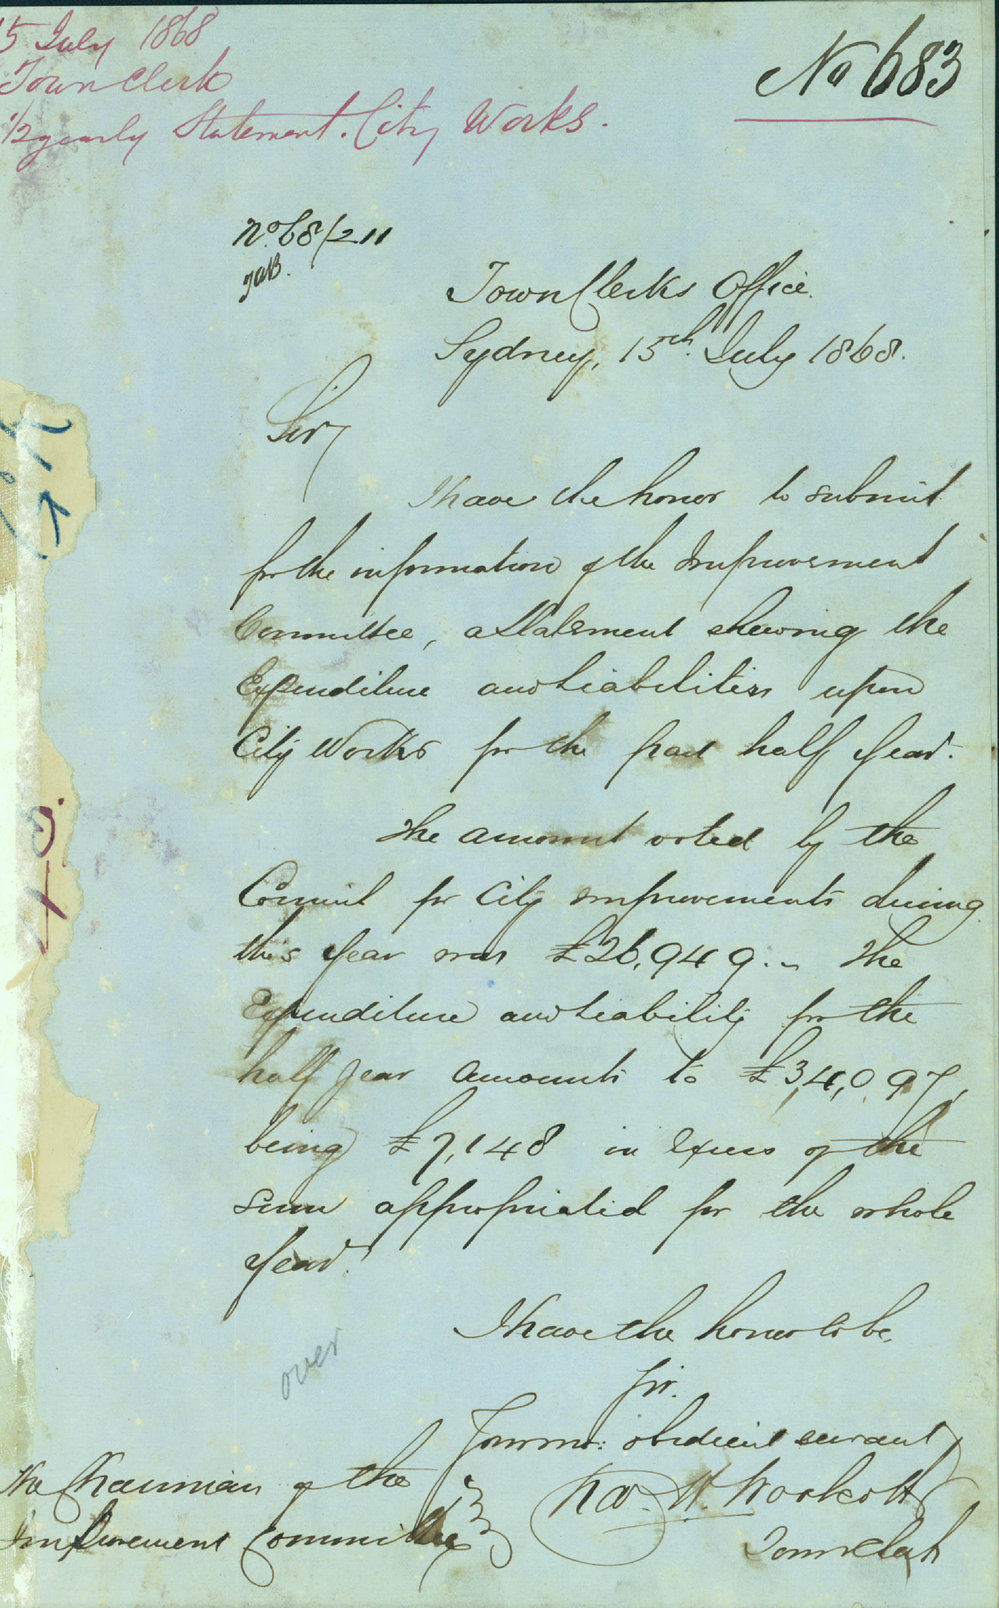 15 July 1868
Town Clerk
1/2 yearly Statement. City Works.
No 683
No. 68/211
Town Clerks Office.
Sydney, 15th July 1868.
Sir,
I have the honor to submit
for the information of the Improvement
Committee, a Statement shewing the
Expenditure and Liabilities upon
City Works for the past half year.
The amount voted by the
Council for City Improvements during
this year was £26,949.- The
Expenditure and Liability for the
half year amounts to £34,097,
being £7,148 in excess of the
sum appropriated for the whole
year.
I have the honor to be,
Sir.
Your mo: obedient servant
Chas. H. Woolcott
Town Clerk
The Chairman of the
Improvement Committee
over